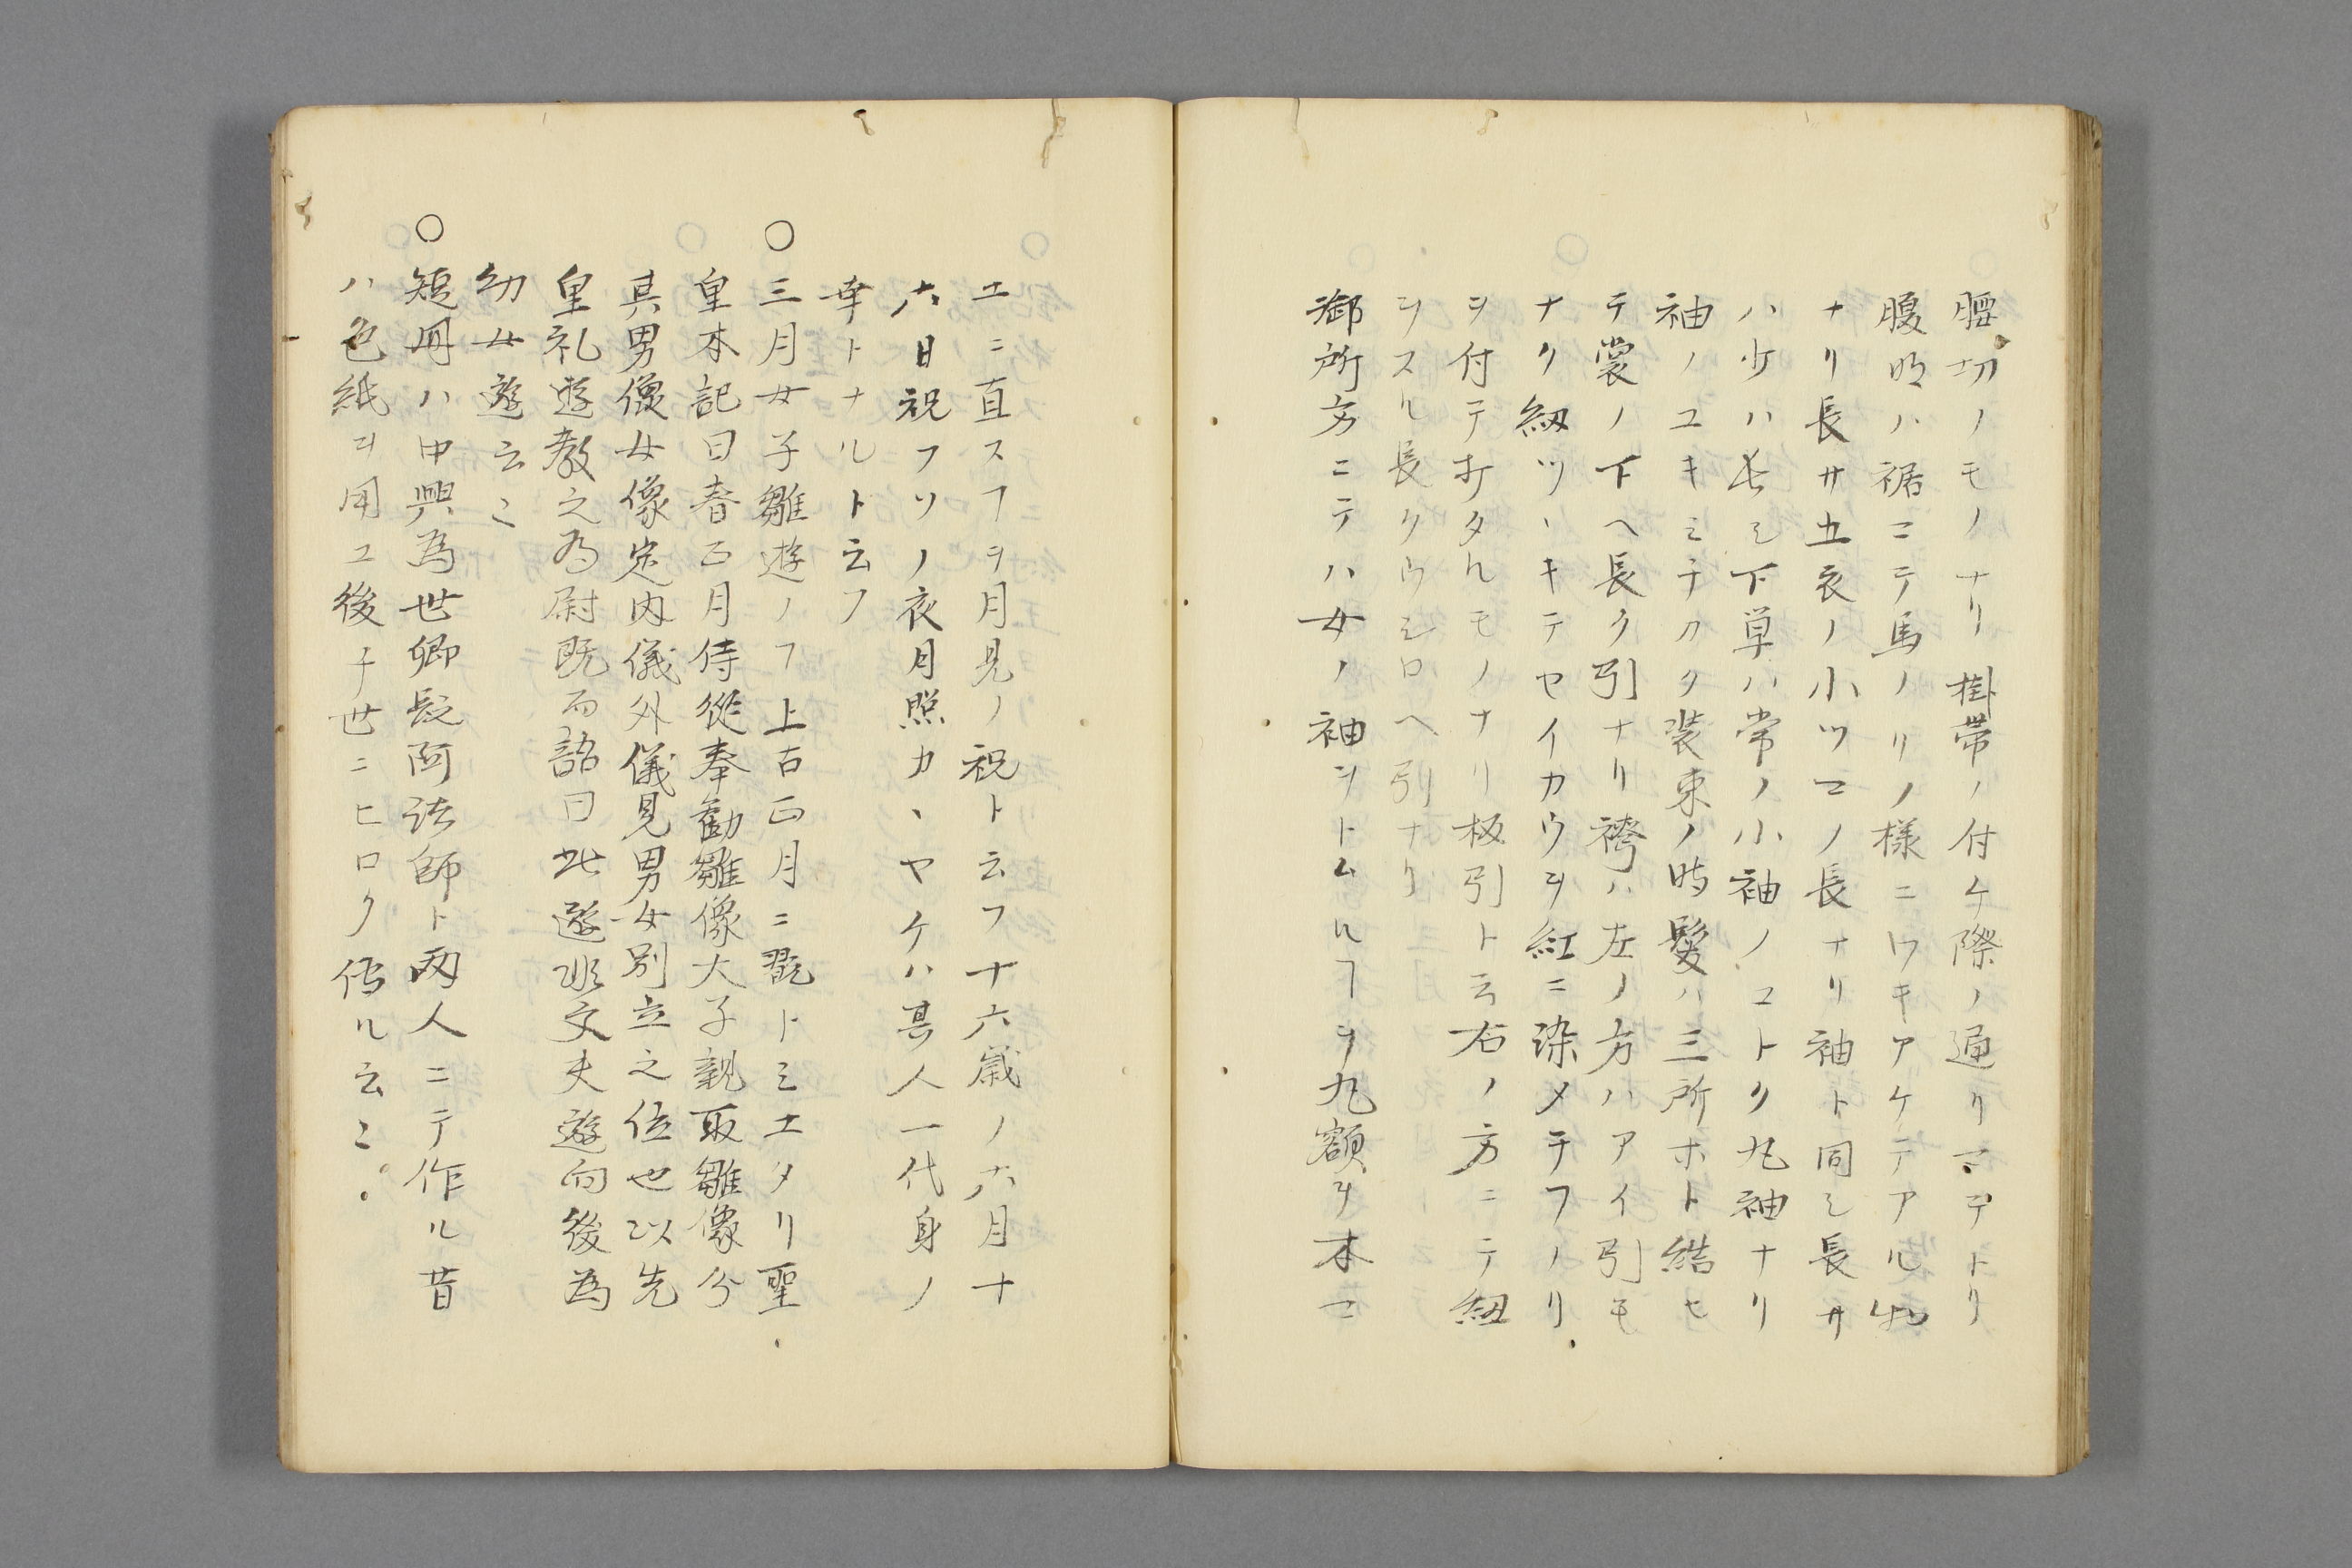 腰切ノモノナリ掛帯ノ付ケ際ノ通リマデトリ
腹明ハ裾ニテ馬ノリノ様ニワキアケテアル物
ナリ長サ五衣ノ小ツマノ長ナリ袖ト同シ長サ
ハ少ハ長シ下単ハ常ノ小袖ノコトク丸袖ナリ
袖ノユキミチカク装束ノ時髪ハ三所ホト結セ
テ裳ノ下ヘ長ク引ナリ袴ハ左ノ方ハアイ引モ
ナク紐ツヽキテセイカウヲ紅ニ染メテフノリ
ヲ付テ打タルモノナリ板引ト云右ノ方ニテ紐
ヲスル長クウシロヘ引ナリ
御所方ニテハ女ノ袖ヲトムルヿヲ丸額ヲ木マ
エニ直スヿヲ月見ノ祝ト云フ十六歳ノ六月十
六日祝フソノ夜月照カヽヤケハ其人一代身ノ
幸トナルト云フ
〇三月女子雛遊ノヿ上古正月ニ翫トミエタリ聖
皇本記曰春正月侍従奉勧雛像大子親取雛像分
其男像女像定内儀外儀見男女別立之位也以先
皇礼遊教之為尉既而詔曰此遊非丈夫遊向後為
幼女遊云々
〇短冊ハ中興為世卿頓阿法師ト両人ニテ作ル昔
ハ色紙ヲ用ユ後チ世ニヒロク伝ル云々